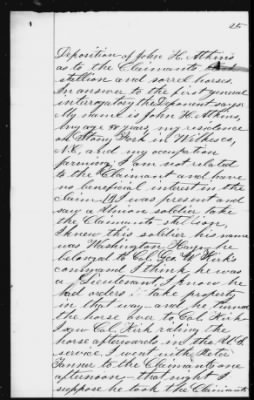 25
Deposition of John H. Atkins
as to the Claimants
stallion and sorrel horses.
In answer to the first general
interrogatory the Deponent says
My name is John H. Atkins,
my age years, my residence
at Stony Fork in Wilkes Co,
N.C, and my occupation
farming, I am not related
to the Claimant and have
no beneficial interest in the
claim I was present and
saw a Union soldier take
the Claimants stallion,
I knew this soldier his name
was Washington he
belonged to Col. Geo W. Kirks
command I think he was
a Lieutenant, I know he
had orders to take property
in that way and he turned
the horse over to Col. Kirk
I saw Col. Kirk riding the
horse afterwards in the U.S.
service. I went with Peter
Tanner to the Claimants one
afternoon that night I
suppose he took the Claimants